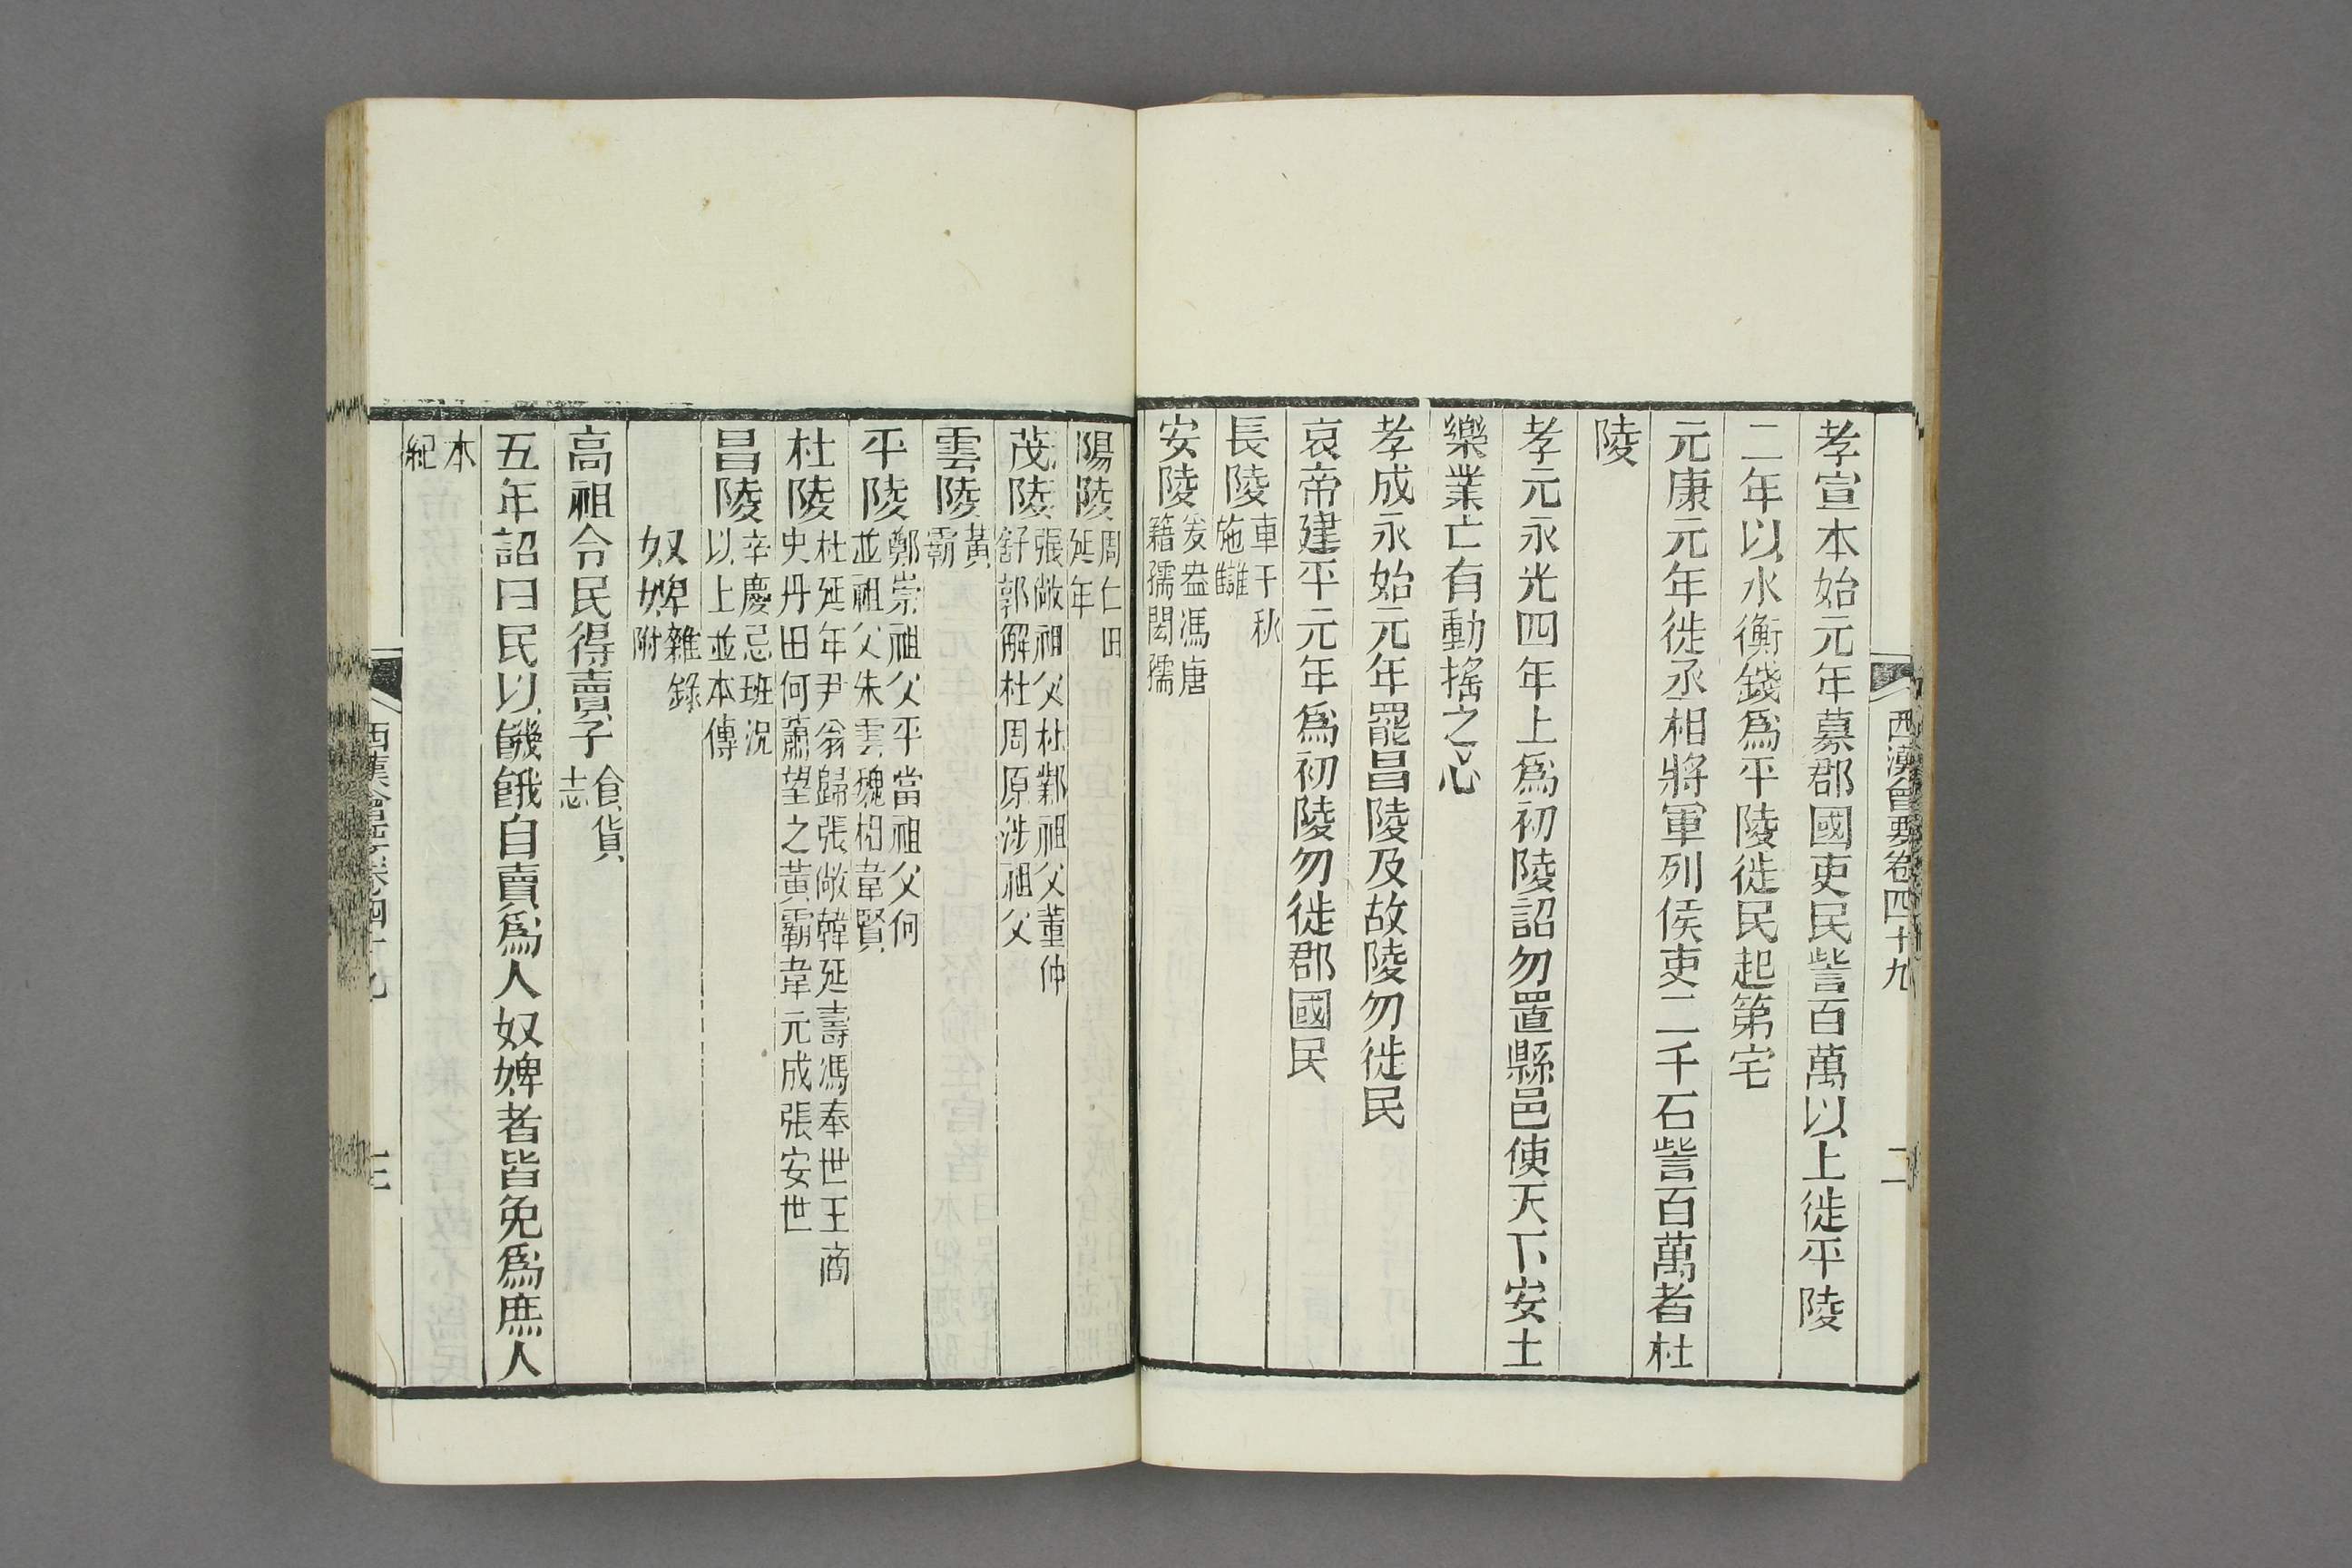 西漢會要卷四十九
二
孝宣本始元年募郡國吏民訾百萬以上徙平陵
二年以水衡錢爲平陵徙民起第宅
元康元年徙丞相將軍列侯吏二千石訾百萬者杜
陵
孝元永光四年上爲初陵詔勿置縣邑使天下安土
樂業亡有動搖之心
孝成永始元年罷昌陵及故陵勿徙民
哀帝建平元年爲初陵勿徙郡國民
長陵車千秋
施讎
安陵爰盎馮唐
籍孺閎孺
陽陵周仁田
延年
茂陵張敞祖父杜鄴祖父董仲
舒郭解杜周原涉祖父
雲陵黃
霸
平陵鄭崇祖父平當祖父何
並祖父朱雲魏相韋賢
杜陵杜延年尹翁歸張敞韓延壽馮奉世王商
史丹田何蕭望之黃霸韋元成張安世
昌陵辛慶忌班況
以上並本傳
奴婢雜錄
附
高祖令民得賣子食貨
志
五年詔曰民以饑餓自賣爲人奴婢者皆免爲庶人
本
紀
西漢會要卷四十九
三